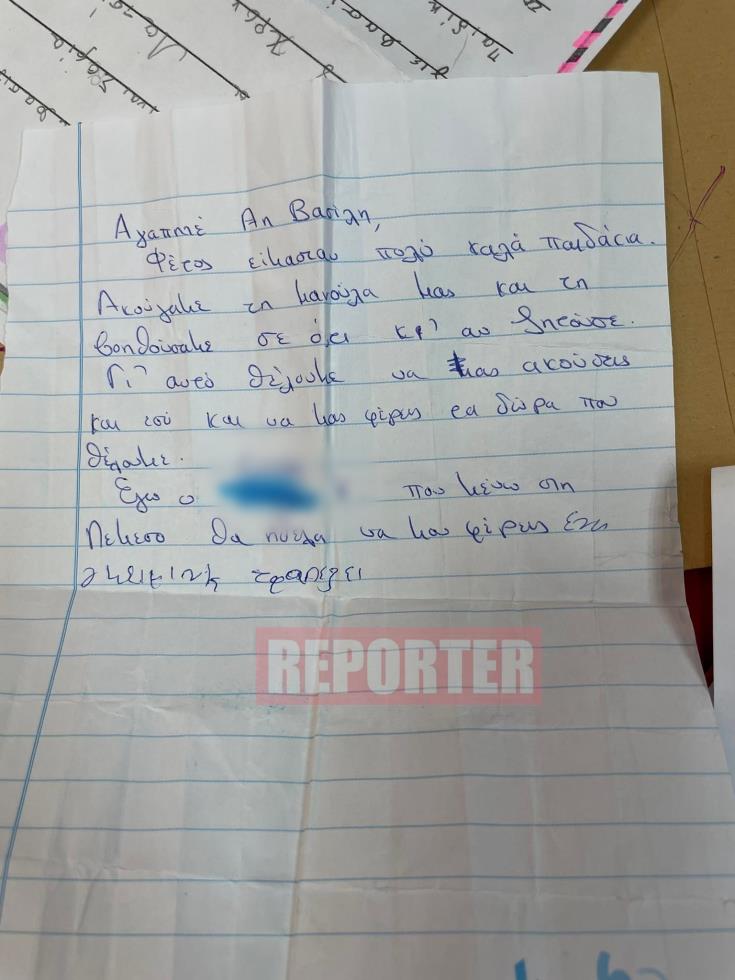 Αγαπητέ Αη Βασίλη,
Φέτος είμασταν πολύ καλά παιδάκια.
Ακούγαμε τη μανούλα μας και τη
βοηθούσαμε σε ότι κι' αν ζητούσε.
Γι' αυτό θέλουμε να μας ακούσεις
και εσύ και να μας φέρεις τα δώρα που
θέλαμε.
Εγώ ο που μένω στη
Λεμεσό θα ήθελα να μου φέρεις ένα
τραπέζι
REPORTER